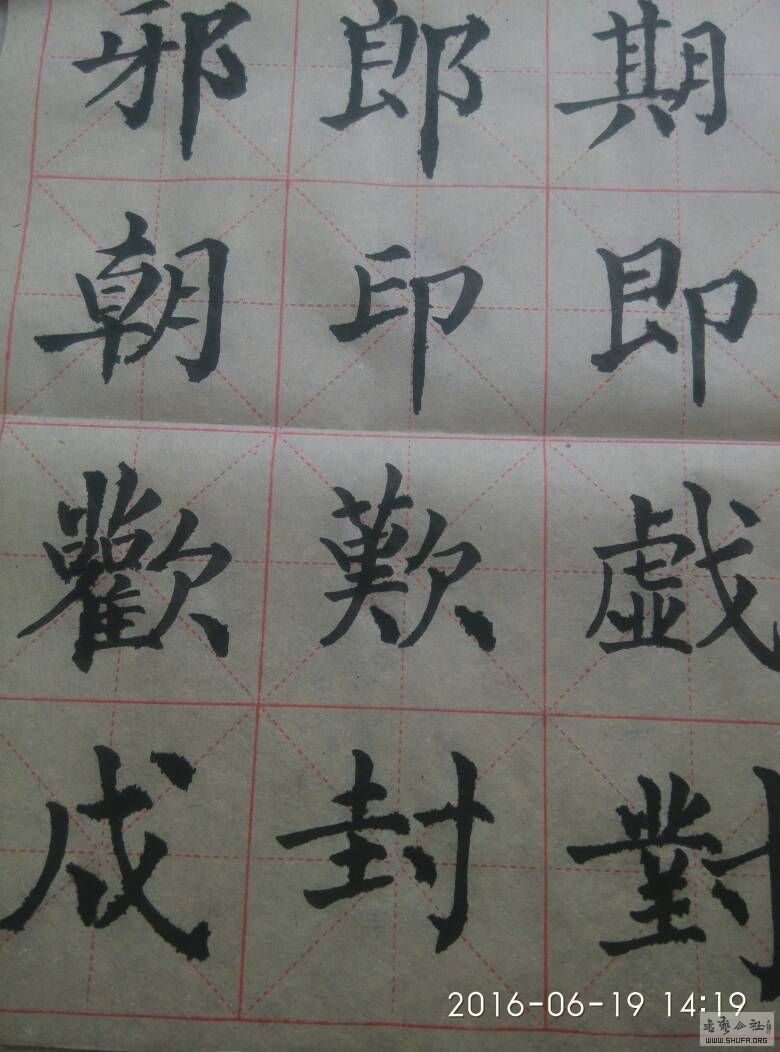 邪郎期
朝印即
歡歎戱
成封對
2016-06-19 14:19
书艺公社
WWW.SHUFA.ORG